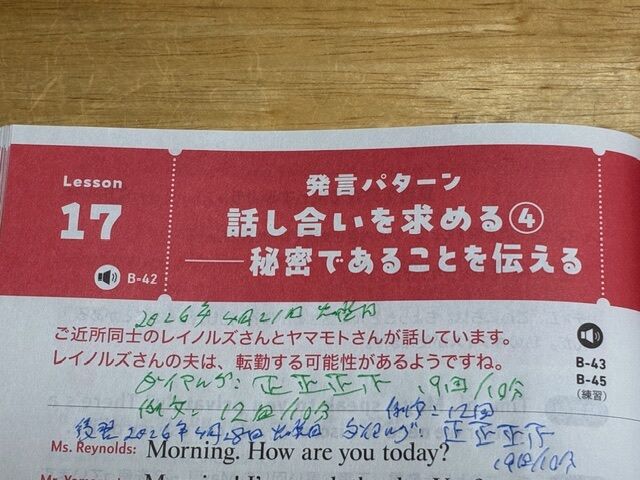 Lesson
17
B-42
発言パターン
話し合いを求める④
——秘密であることを伝える
2026年4月21日 火曜日
ご近所同士のレイノルズさんとヤマモトさんが話しています。
レイノルズさんの夫は、転勤する可能性があるようですね。
B-43
B-45
(練習)
ダイアログ: 正正正下 19回/10分
例文: 12回/10分 例文: 12回
復習 2026年4月28日 火曜日 ダイアログ: 正正正下
19回/10分
Ms. Reynolds: Morning. How are you today?